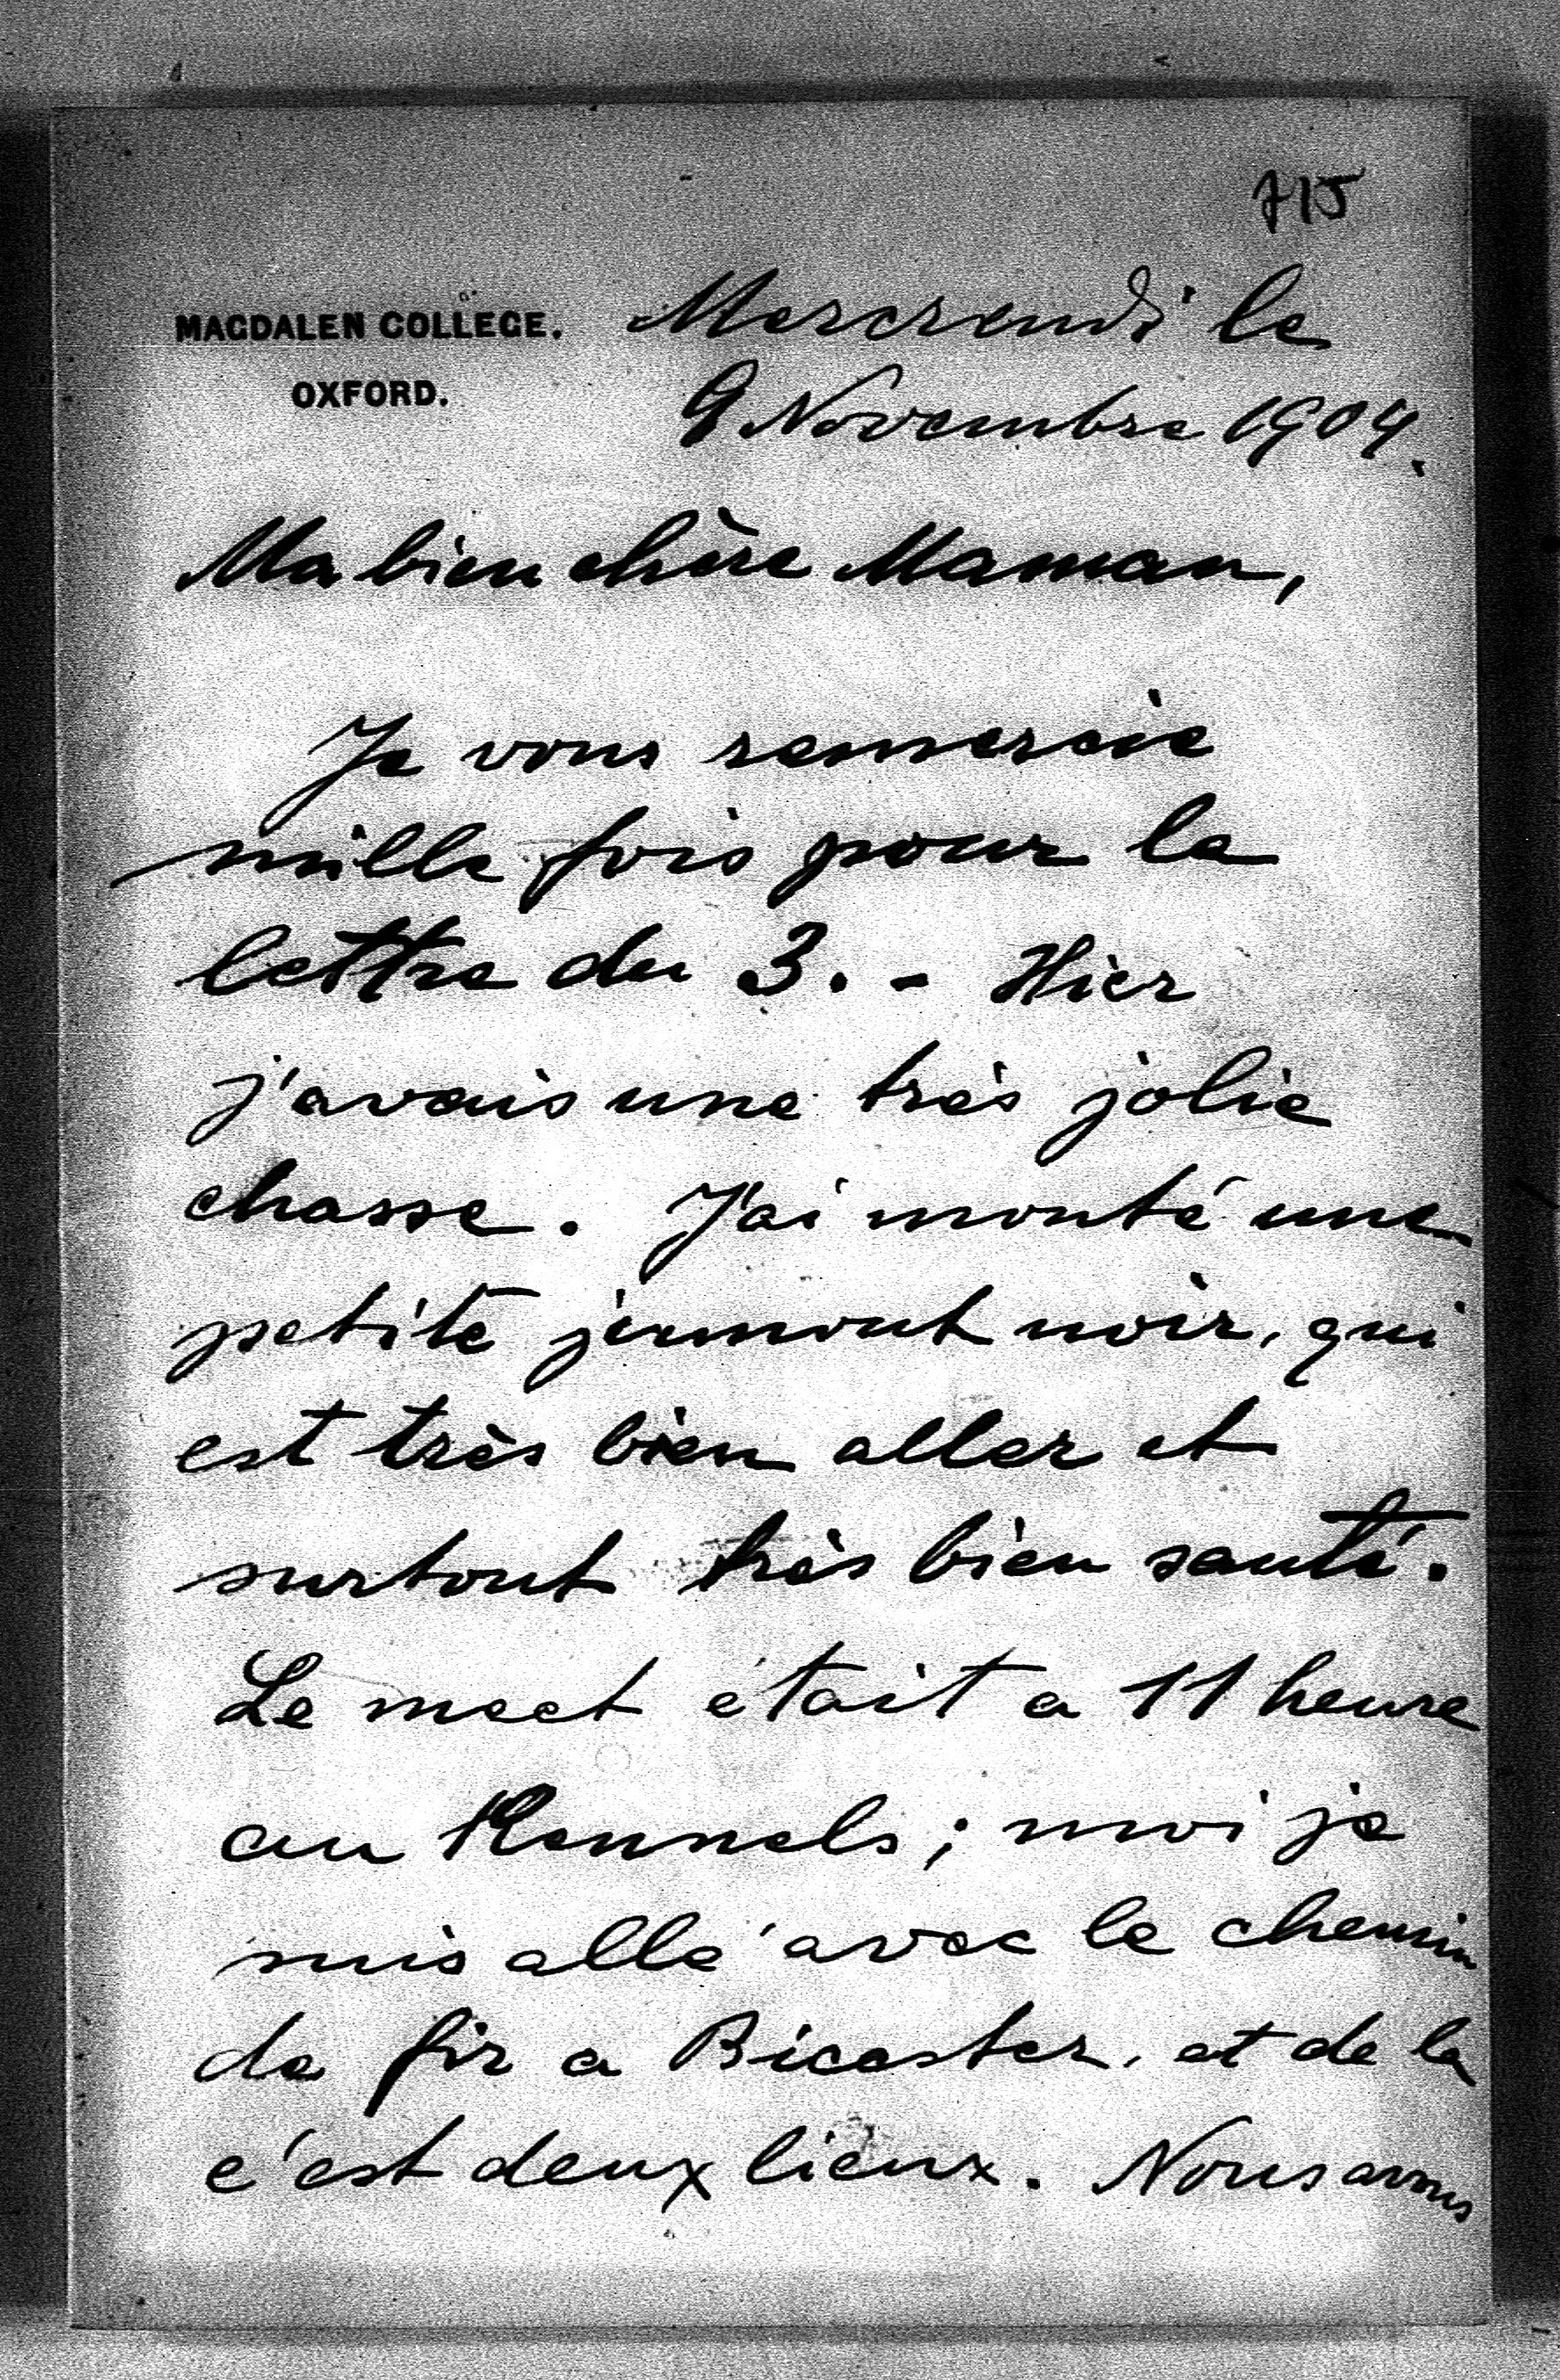 715
MAGDALEN COLLEGE.
OXFORD.
Mercrendi le
9 Novembre 1904.
Ma bien chère Maman,
Je vous remercie
mille fois pour la
lettre du 3. - Hier
j'avais une très jolie
chasse. J'ai monté une
petite jumont noir, qui
est très bien aller et
surtout très bien sauté.
Le meet était a 11 heure
au Kennels; moi je
suis allé avec le chemin
de fir a Bicester, et de la
c'est deux lieux. Nous avons